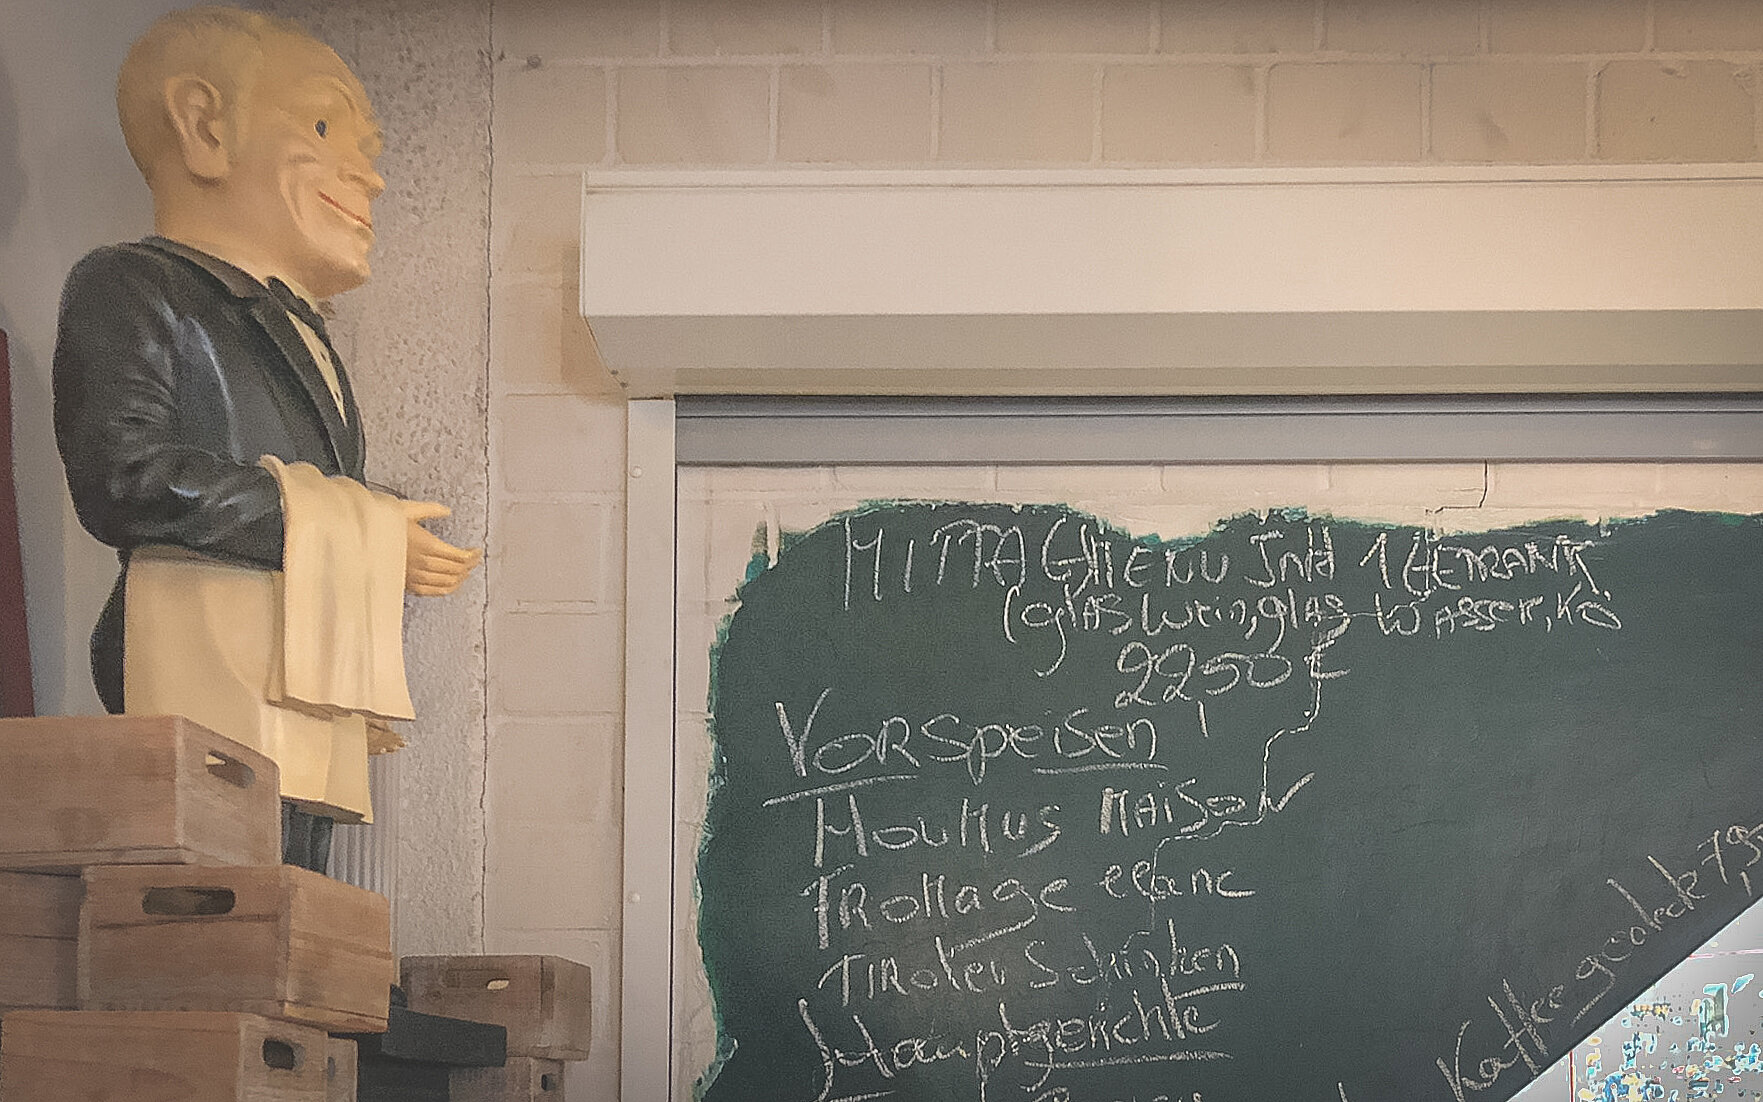 MITTAGMENU INH 1 GETRANK
(glas Wein, glas Wasser, Kö
22,50 €
Vorspeisen
Houmus MAISON
FROMAGE BLANC
TIROLER Schinken
Hauptgerichte
Kaffee gedeck 7,9